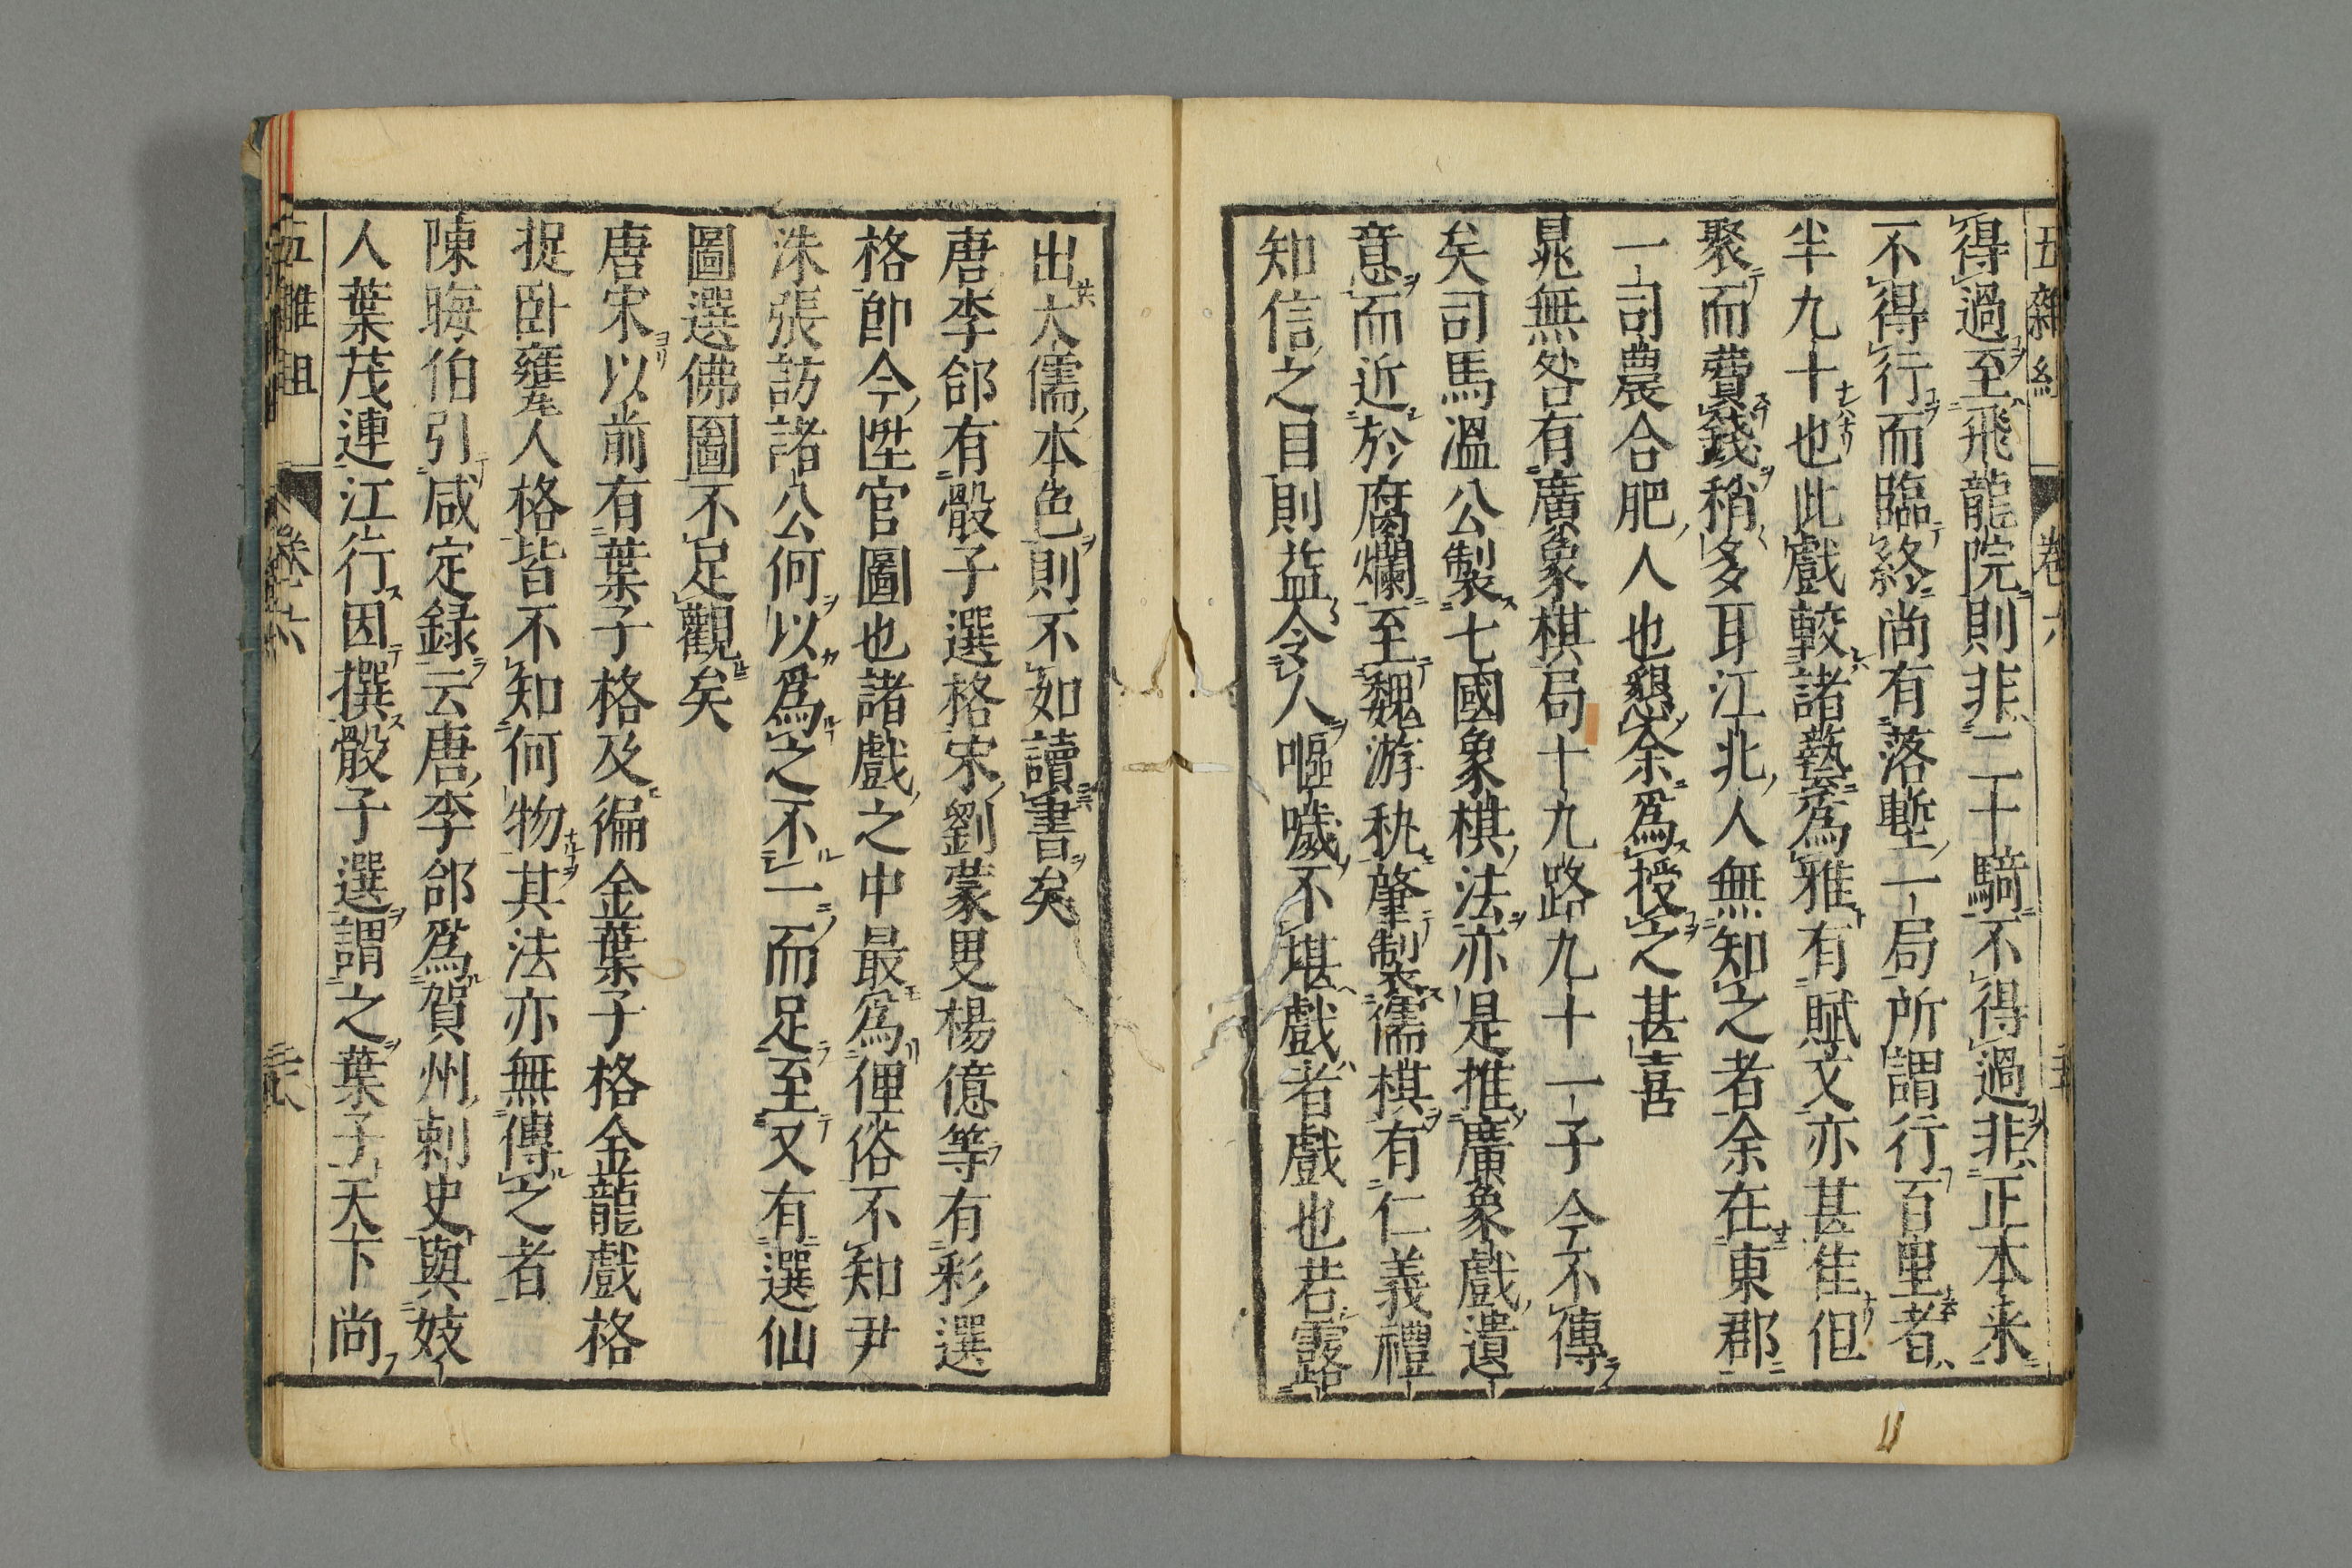 得過至飛龍院則非二十騎不得過非正本来
不得行而臨終尚有落塹一局所謂行百里者
半九十也此戲較諸藝爲雅有賦文亦甚佳但
聚而費錢稍多耳江北人無知之者余在東郡
一司農合肥人也懇余爲授之甚喜
晁無咎有廣象棋局十九路九十一子今不傳
矣司馬溫公製七國象棋法亦是推廣象戲遺
意而近於腐爛至魏游秇肇製儒棋有仁義禮
知信之目則益令人嘔噦不堪戲者戲也若露
出大儒本色則不如讀書矣
唐李郃有骰子選格宋劉蒙叟楊億等有彩選
格卽今陞官圖也諸戲之中最爲俚俗不知尹
洙張訪諸公何以爲之不一而足至又有選仙
圖選佛圖不足觀矣
唐宋以前有葉子格及徧金葉子格金龍戲格
捉卧甕人格皆不知何物其法亦無傳之者
陳晦伯引咸定録云唐李郃爲賀州刺史與妓
人葉茂連江行因撰骰子選謂之葉子天下尚
五雜組
卷六